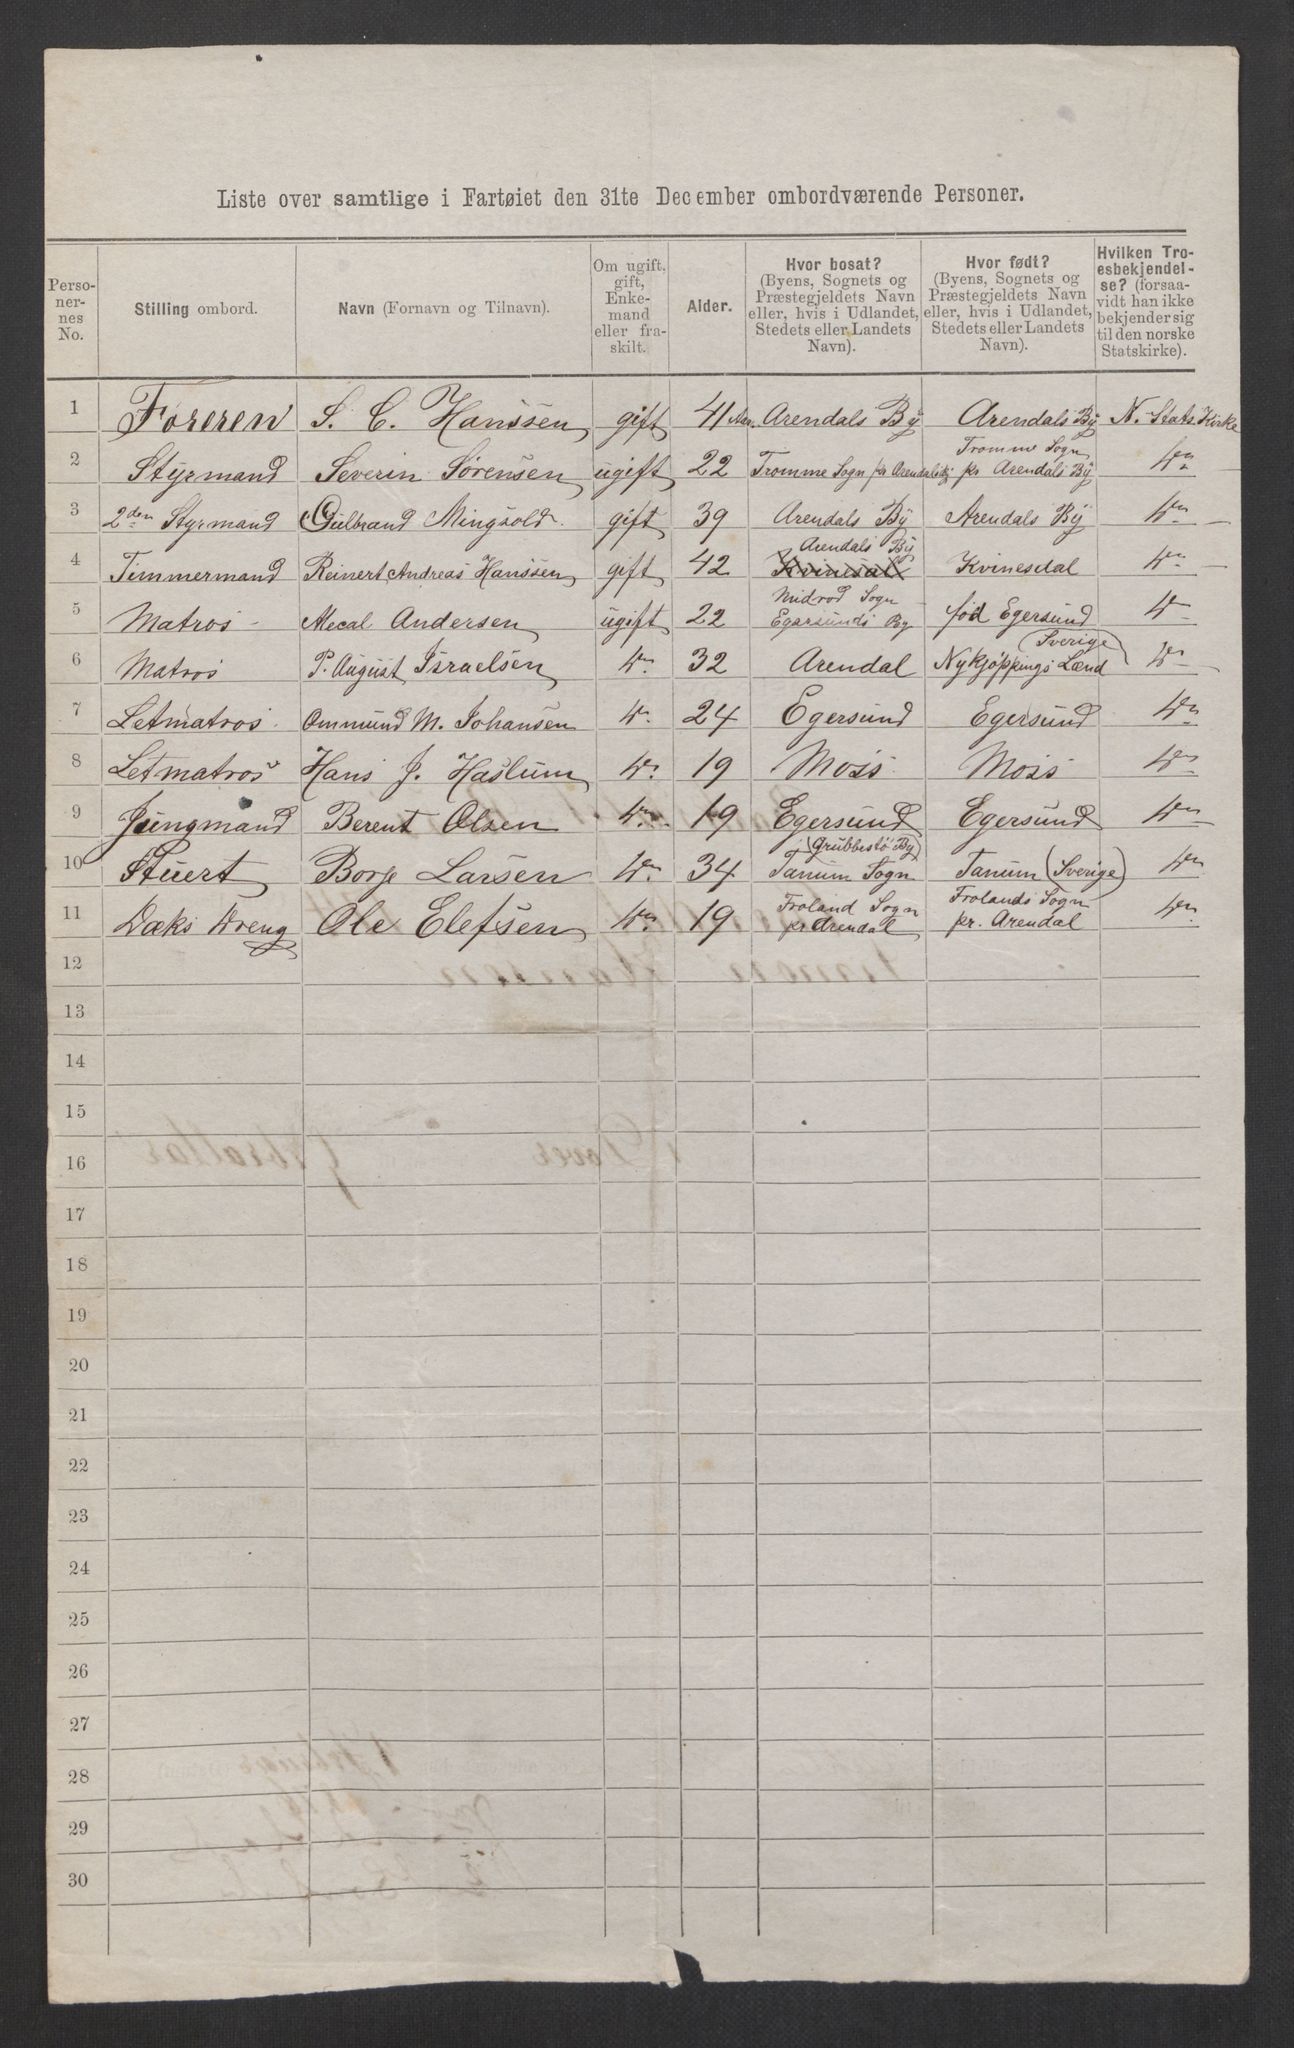 Liste over samtlige i Fartøiet den 31te December ombordværende Personer.
Perso-
ner-
nes
No.
Stilling ombord.
Navn (Fornavn og Tilnavn).
Om ugift,
gift,
Enke-
mand
eller fra-
skilt.
Alder.
Hvor bosat?
(Byens, Sognets og
Præstegjeldets Navn
eller, hvis i Udlandet,
Stedets eller Landets
Navn).
Hvor født?
(Byens, Sognets og
Præstegjeldets Navn
eller, hvis i Udlandet,
Stedets eller Landets
Navn).
Hvilken Tro-
esbekjendel-
se? (forsaa-
vidt han ikke
bekjender sig
til den norske
Statskirke).
1 Føreren S. C. Hanssen gift 41 Aar. Arendals By Arendals By N. Stats Kirke
2 Styrmand Severin Sørensen ugift 22 Tromme Sogn pr Arendals By Tromme Sogn pr Arendals By Do
3 2den Styrmand Gulbrand Mingsold gift 39 Arendals By Arendals By Do
4 Timmermand Reinert Andreas Hanssen gift 42 Kvinesdal Arendals By Kvinesdal Do
5 Matros Mecal Andersen ugift 22 Midrod Sogn Egersunds By fød Egersund Do
6 Matros P. August Israelsen Do 32 Arendal Nykjøppings Lænd (Sverige) Do
7 Letmatros Ommund M. Johansen Do 24 Egersund Egersund Do
8 Letmatros Hans J. Haslum Do 19 Moss Moss Do
9 Jungmand Berent Olsen Do 19 Egersund Egersund Do
10 Stuert Borje Larsen Do 34 (Grubbestø By) Tanum Sogn Tanum (Sverige) Do
11 Dæks Dreng Ole Elefsen Do 19 Froland Sogn pr Arendal Frolands Sogn pr. Arendal Do
12
13
14
15
16
17
18
19
20
21
22
23
24
25
26
27
28
29
30